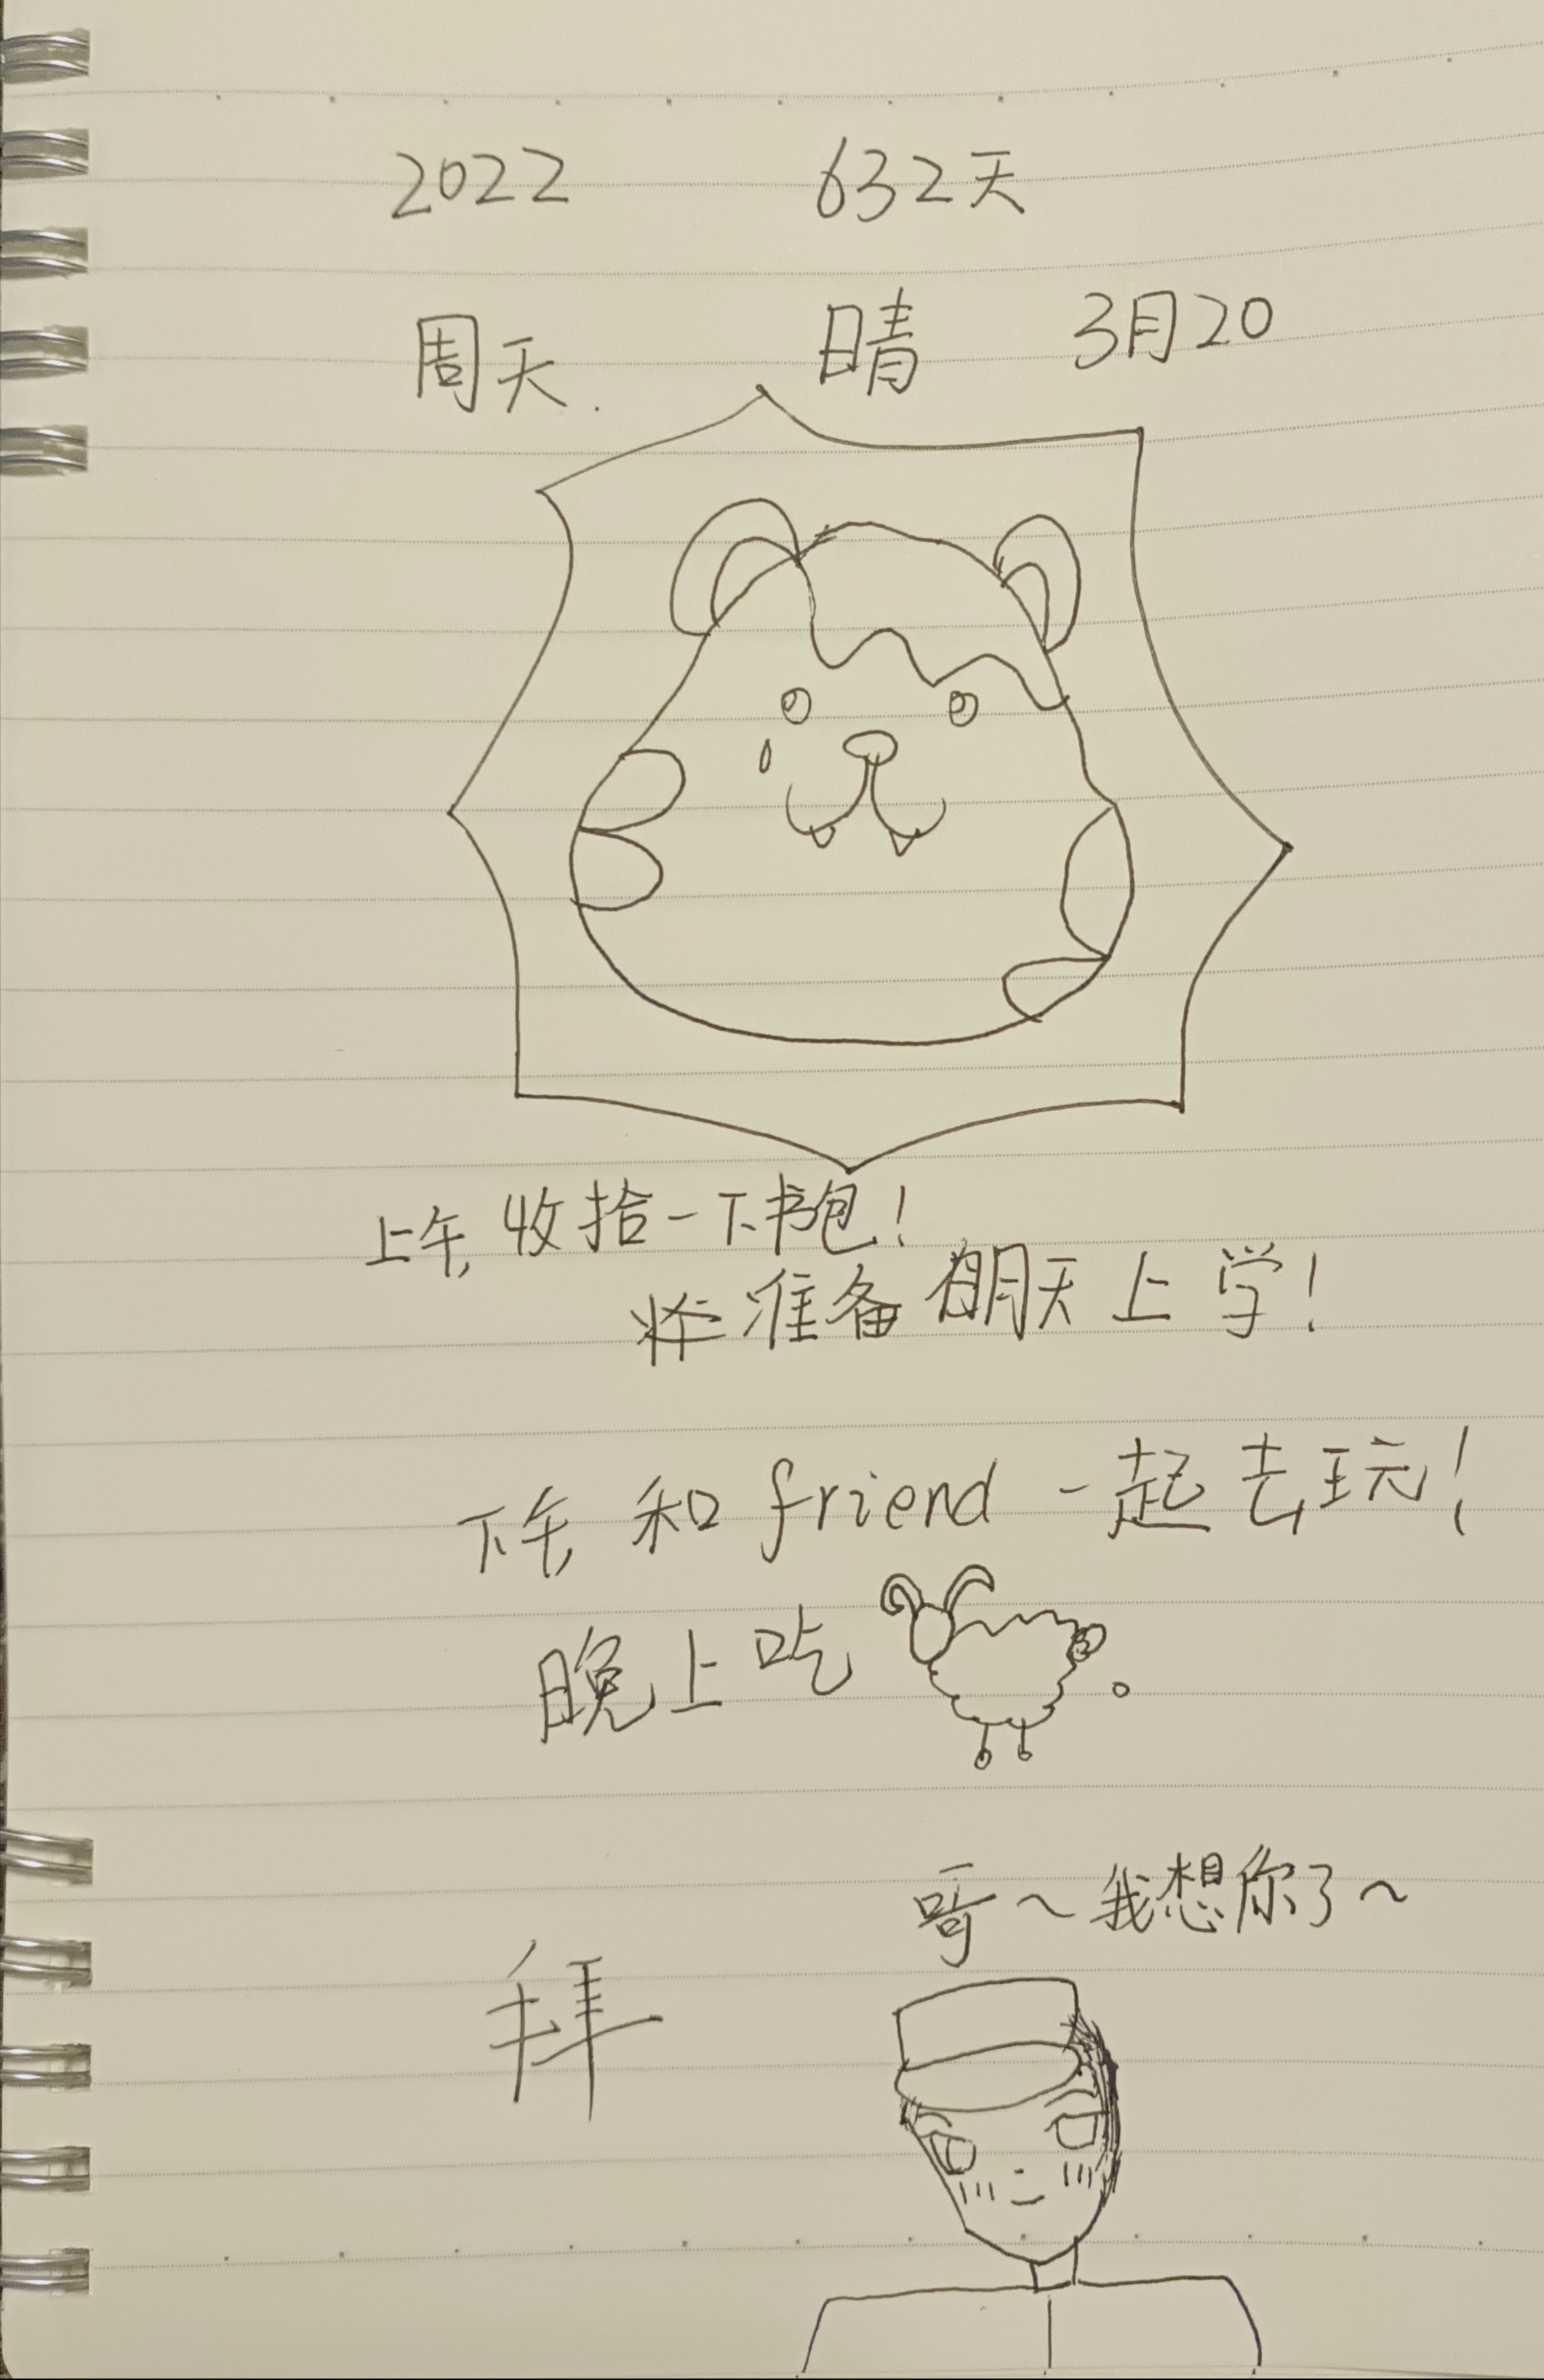 2022 632天
周天. 晴 3月20
上午,收拾一下书包!
准备明天上学!
下午,和friend一起去玩!
晚上吃。
哥~我想你了~
拜